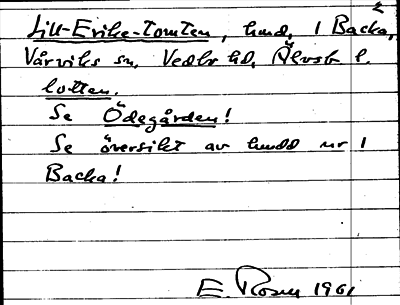 Lill-Erike-Tomten, hmd, 1 Backa,2
Vårviks sn, Vedbo hd, Älvsb l.
lotten.
Se Ödegården!
Se översikt av hmdd nr 1
Backa!
E. Rosen 1961